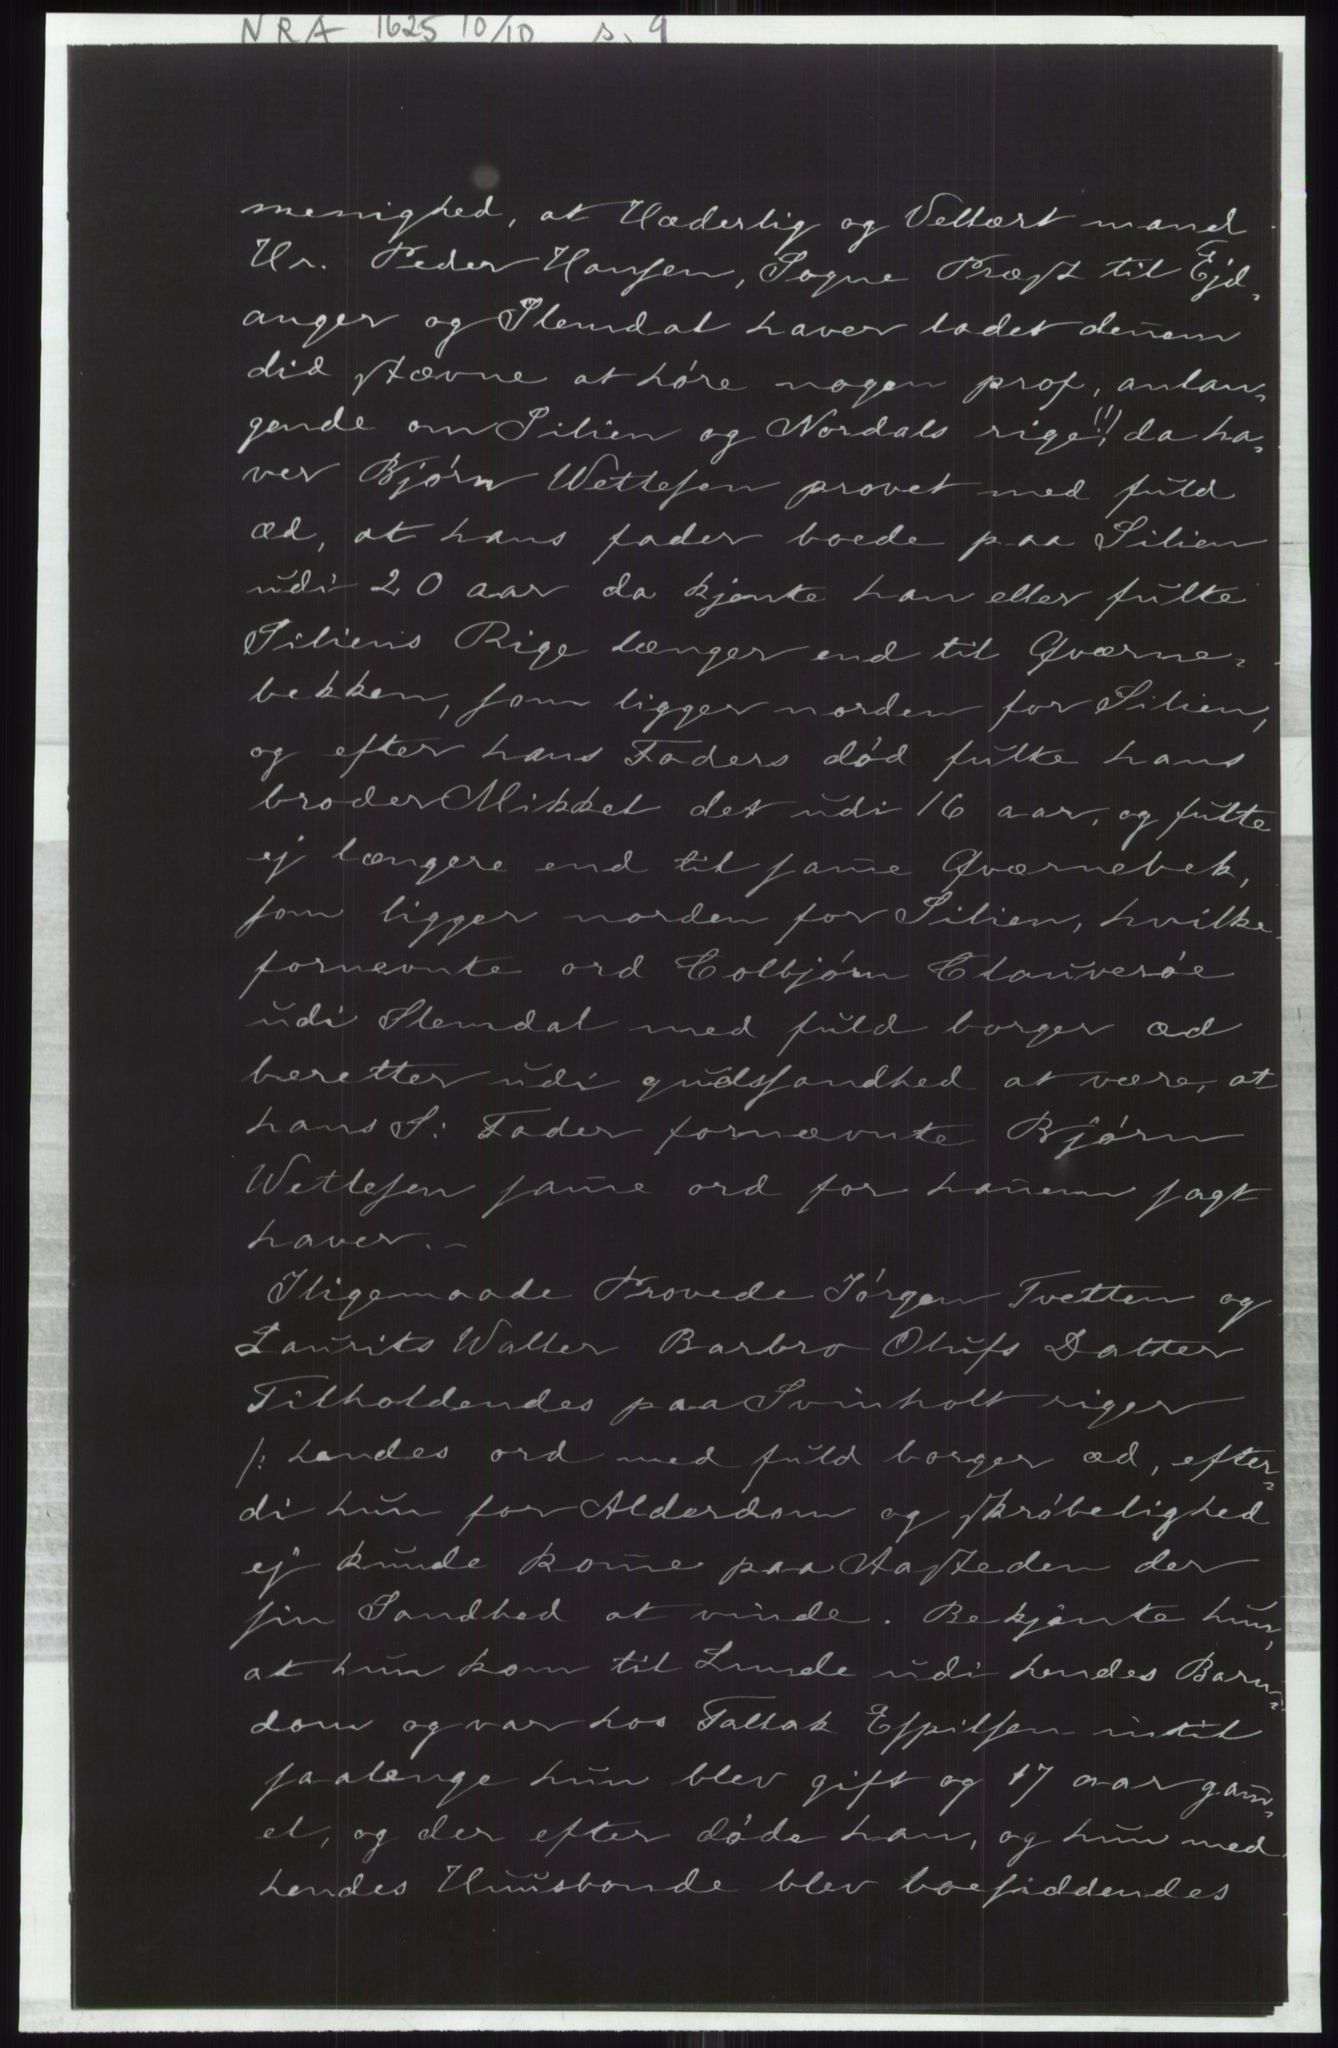 NRA 1625 10/10 s. 9
menighed, at Hæderlig og Vellært mand
Hr. Peder Hansen, Sogne Præst til Ejd-
anger og Slemdal haver ladet dennem
did stævne at høre nogen prof, anlan-
gende om Silien og Nordals rige(!)! da ha-
ver Bjørn Wetlesen provet med fuld
æd, at hans fader boede paa Silien
udi 20 aar da kjente han eller fulte
Siliens Rige længer end til Qværne-
bekken, som ligger norden for Silien,
og efter hans Faders død fulte hans
broder Mikkel det udi 16 aar, og fulte
ej længere end til same Qværnebek,
som ligger norden for Silien, hvilke
fornevnte ord Colbjørn Clauverøe
udi Slemdal med fuld borger æd
beretter udi gudssandhed at være, at
hans S: Fader fornævnte Bjørn
Wetlesen same ord for hanem sagt
haver.–
Iligemaade Provede Jørgen Tvetten og
Laurits Walter Barbro Olufs Datter
Tilholdendes paa Svinholt rigger
/: hendes ord med fuld borger æd, efter-
di hun for Alderdom og skrøbelighed
ej kunde kome paa Aasteden der
sin Sandhed at vinde. Bekjente hun,
at hun kom til Lunde udi hendes Barn-
dom og var hos Tallak Espilsen intil
saalenge hun blev gift og 17 aar gam-
el, og der efter døde han, og hun med
hendes Huusbonde blev boesiddendes